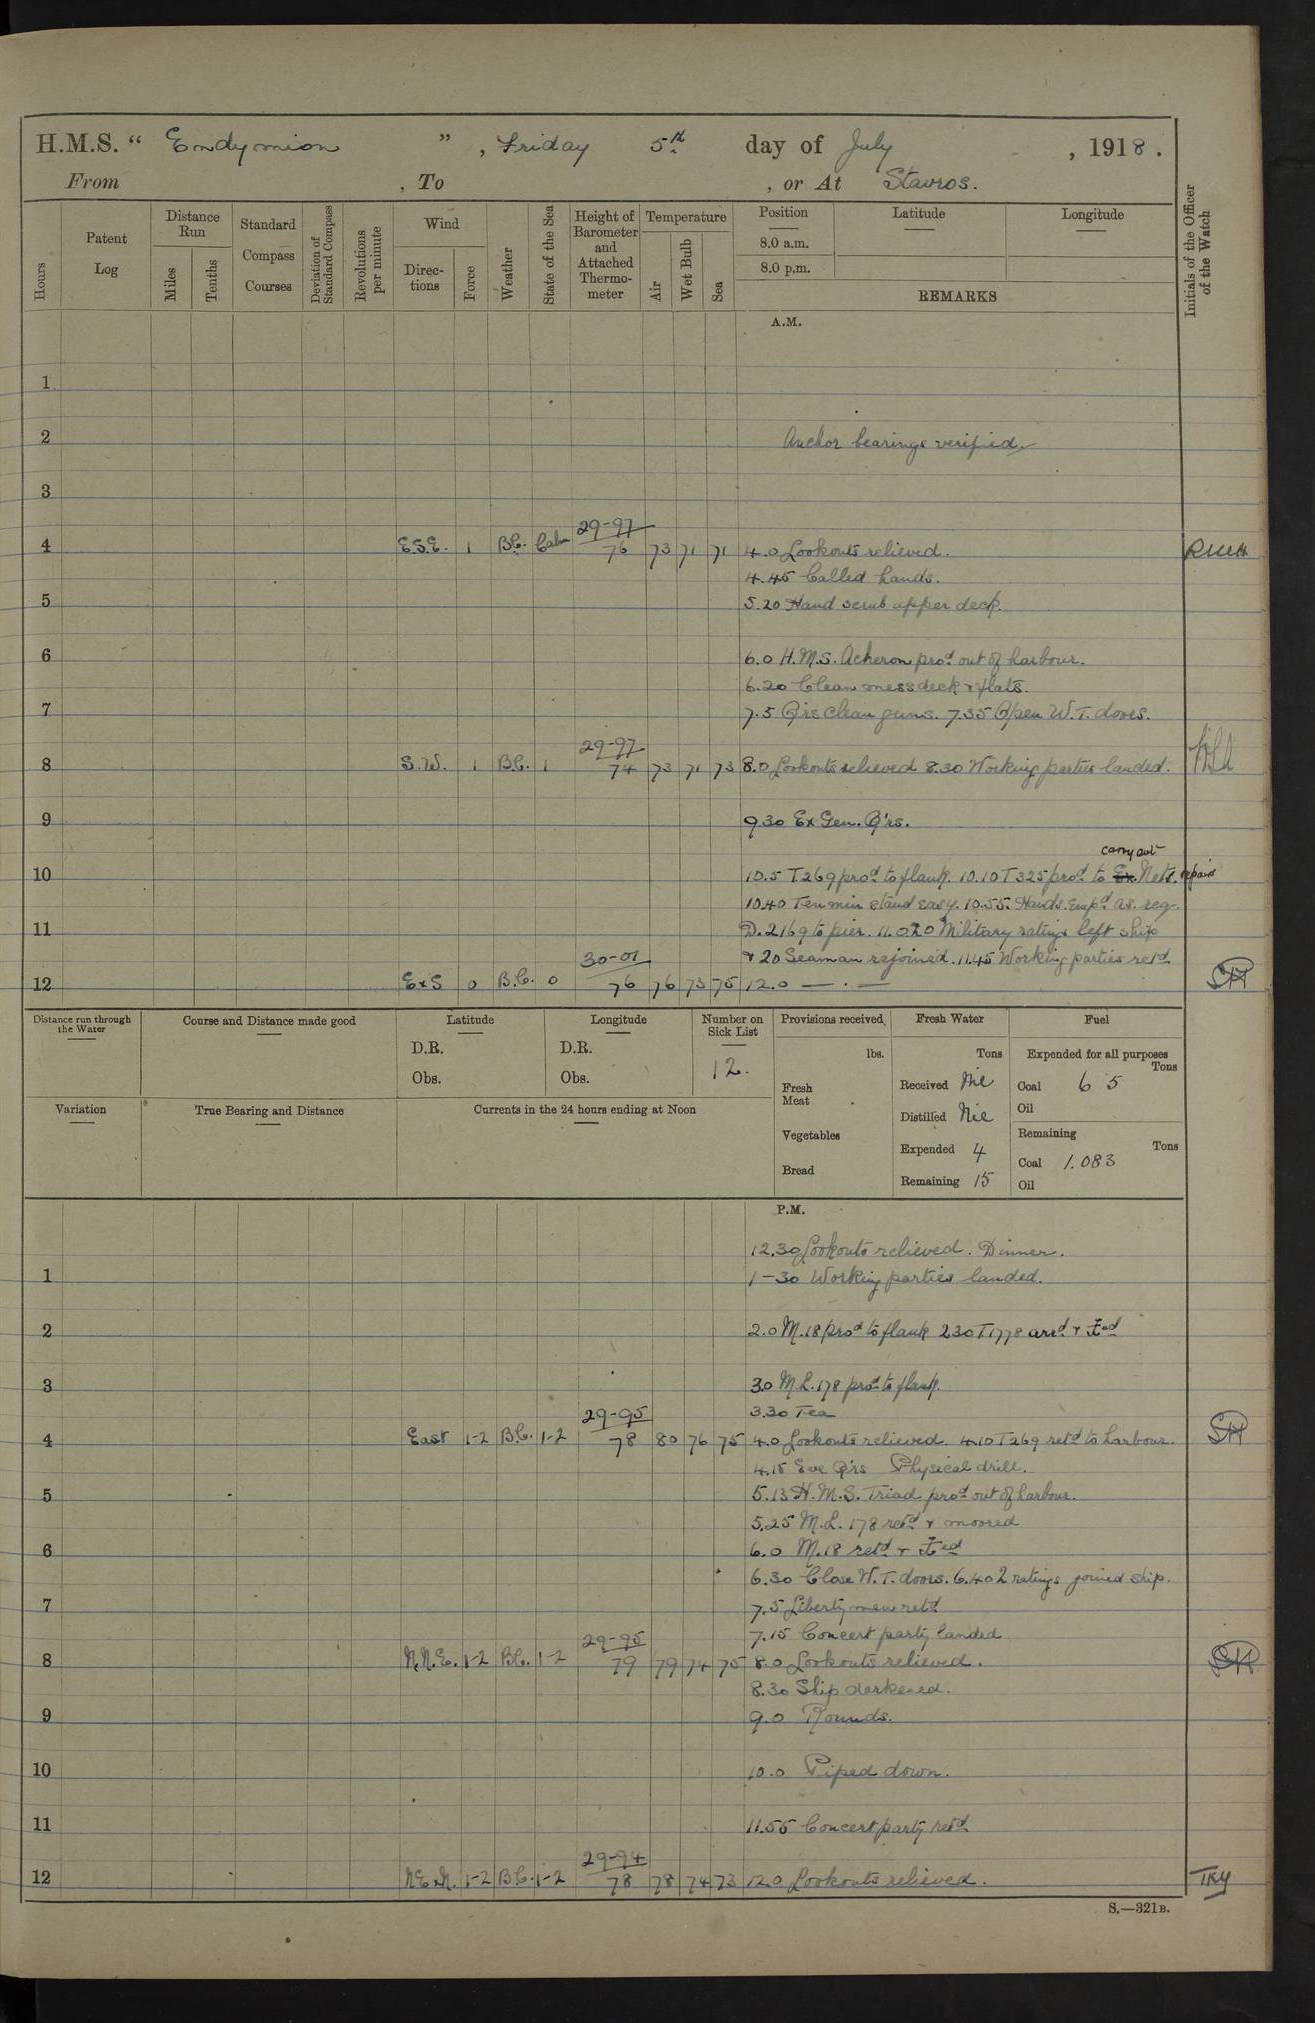 H.M.S. “ Endymion ” , Friday 5th day of July , 1918 .
From , To , or At Stavros.
Hours
Patent Log
Distance Run
Miles
Tenths
Standard Compass Courses
Deviation of Standard Compass
Revolutions per minute
Wind
Direc-tions
Force
Weather
State of the Sea
Height of Barometer and Attached Thermo-meter
Temperature
Air
Wet Bulb
Sea
Position
8.0 a.m.
8.0 p.m.
Latitude
Longitude
REMARKS
Initials of the Officer of the Watch
A.M.
1
2 Anchor bearings verified.
3
29-97
4 E.S.E. 1 B.C. Calm 76 73 71 71 4.0 Lookouts relieved.
4.45 Called hands.
5 5.20 Hand scrub upper deck.
6 6.0 H.M.S. Acheron prod out of harbour.
6.20 Clean messdeck & flats.
7 7.5 Q'rs clean guns. 7.35 Open W.T. doors.
29-97
8 S.W. 1 B.C. 1 74 73 71 73 8.0 Lookouts relieved 8.30 Working parties landed.
9 9.30 Ex Gen. Q'rs.
carry out
10 10.5 T269 prod to flank. 10.10 T325 prod to Ex. Nets. repairs
10.40 Ten min stand easy. 10.55. Hands. Empd as. reg.
11 D. 2169 to pier. 11.0 20 Military ratings left ship
30-01 & 20 Seaman rejoined. 11.45 Working parties retd
12 ExS 0 B.C. 0 76 76 73 75 12.0 — . —
Distance run through the Water
Course and Distance made good
Latitude
D.R.
Obs.
Longitude
D.R.
Obs.
Number on Sick List
12.
Provisions received
lbs.
Fresh Meat
Vegetables
Bread
Fresh Water
Tons
Received Nil
Distilled Nil
Expended 4
Remaining 15
Fuel
Expended for all purposes
Tons
Coal 6 5
Oil
Remaining
Tons
Coal 1.083
Oil
Variation
True Bearing and Distance
Currents in the 24 hours ending at Noon
P.M.
12.30 Lookouts relieved. Dinner.
1 1-30 Working parties landed.
2 2.0 M.18 prod to flank 2.30 T1778 arrd & Æed
3 3.0 M.L. 178 prod to flank.
29-95 3.30 Tea
4 East 1-2 B.C. 1-2 78 80 76 75 4.0 Lookouts relieved. 4.10 T269 retd to harbour.
4.15 Eve Q'rs Physical drill.
5 5.13 H.M.S. Triad prod out of harbour.
5.25 M.L. 178 retd & moored
6 6.0 M.18 retd & Æed
6.30 Close W.T. doors. 6.40 2 ratings joined ship.
7 7.5 Liberty men retd
29-95 7.15 Concert party landed
8 N.N.E. 1-2 B.C. 1-2 79 79 74 75 8.0 Lookouts relieved.
8.30 Ship darkened.
9 9.0 Rounds.
10 10.0 Piped down.
11 11.55 Concert party retd
29-94
12 NExN. 1-2 B.C. 1-2 78 78 74 73 12.0 Lookouts relieved. TKY
S.—321B.